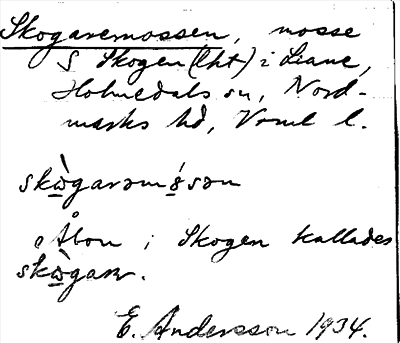 Skogaremossen, mosse
S Skogen (lht) i Liane,
Holmedals sn, Nord-
marks hd, Vrml l.
skò̱garəmǿ̱sən
Åbon i Skogen kallades
skò̱garər.
E. Andersson 1934.